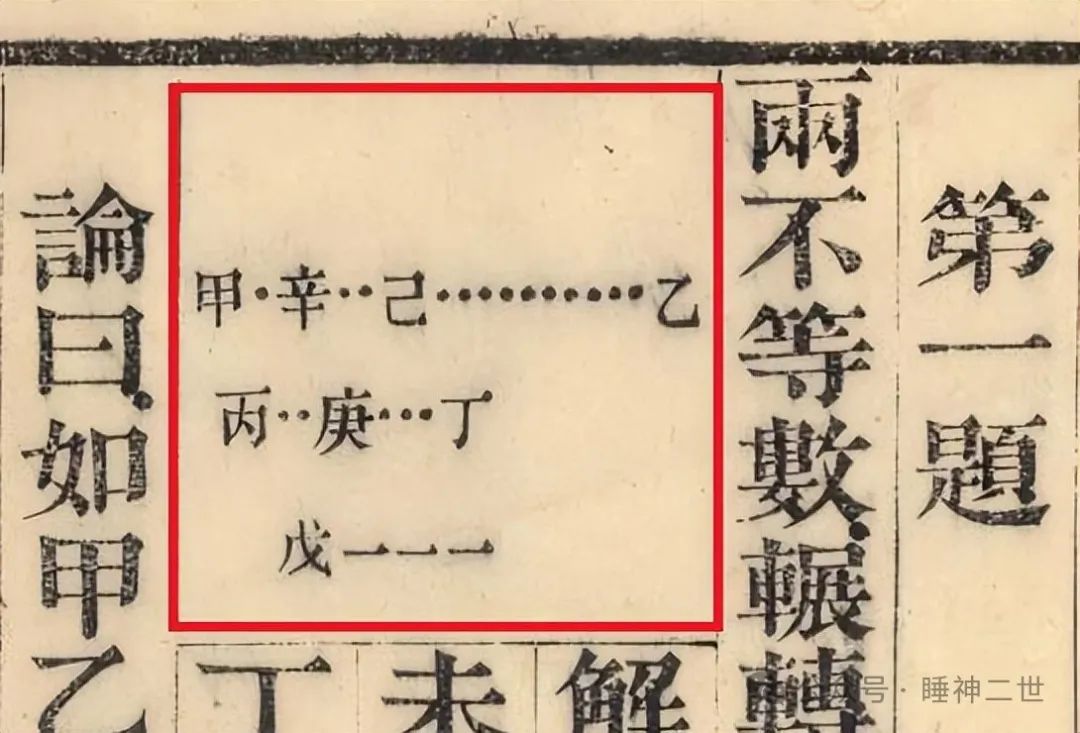 第一題
兩不等數輾轉
甲·辛··己··········乙
丙··庚···丁
戊一一一
解
未
丁
論曰如甲乙
号·睡神二世